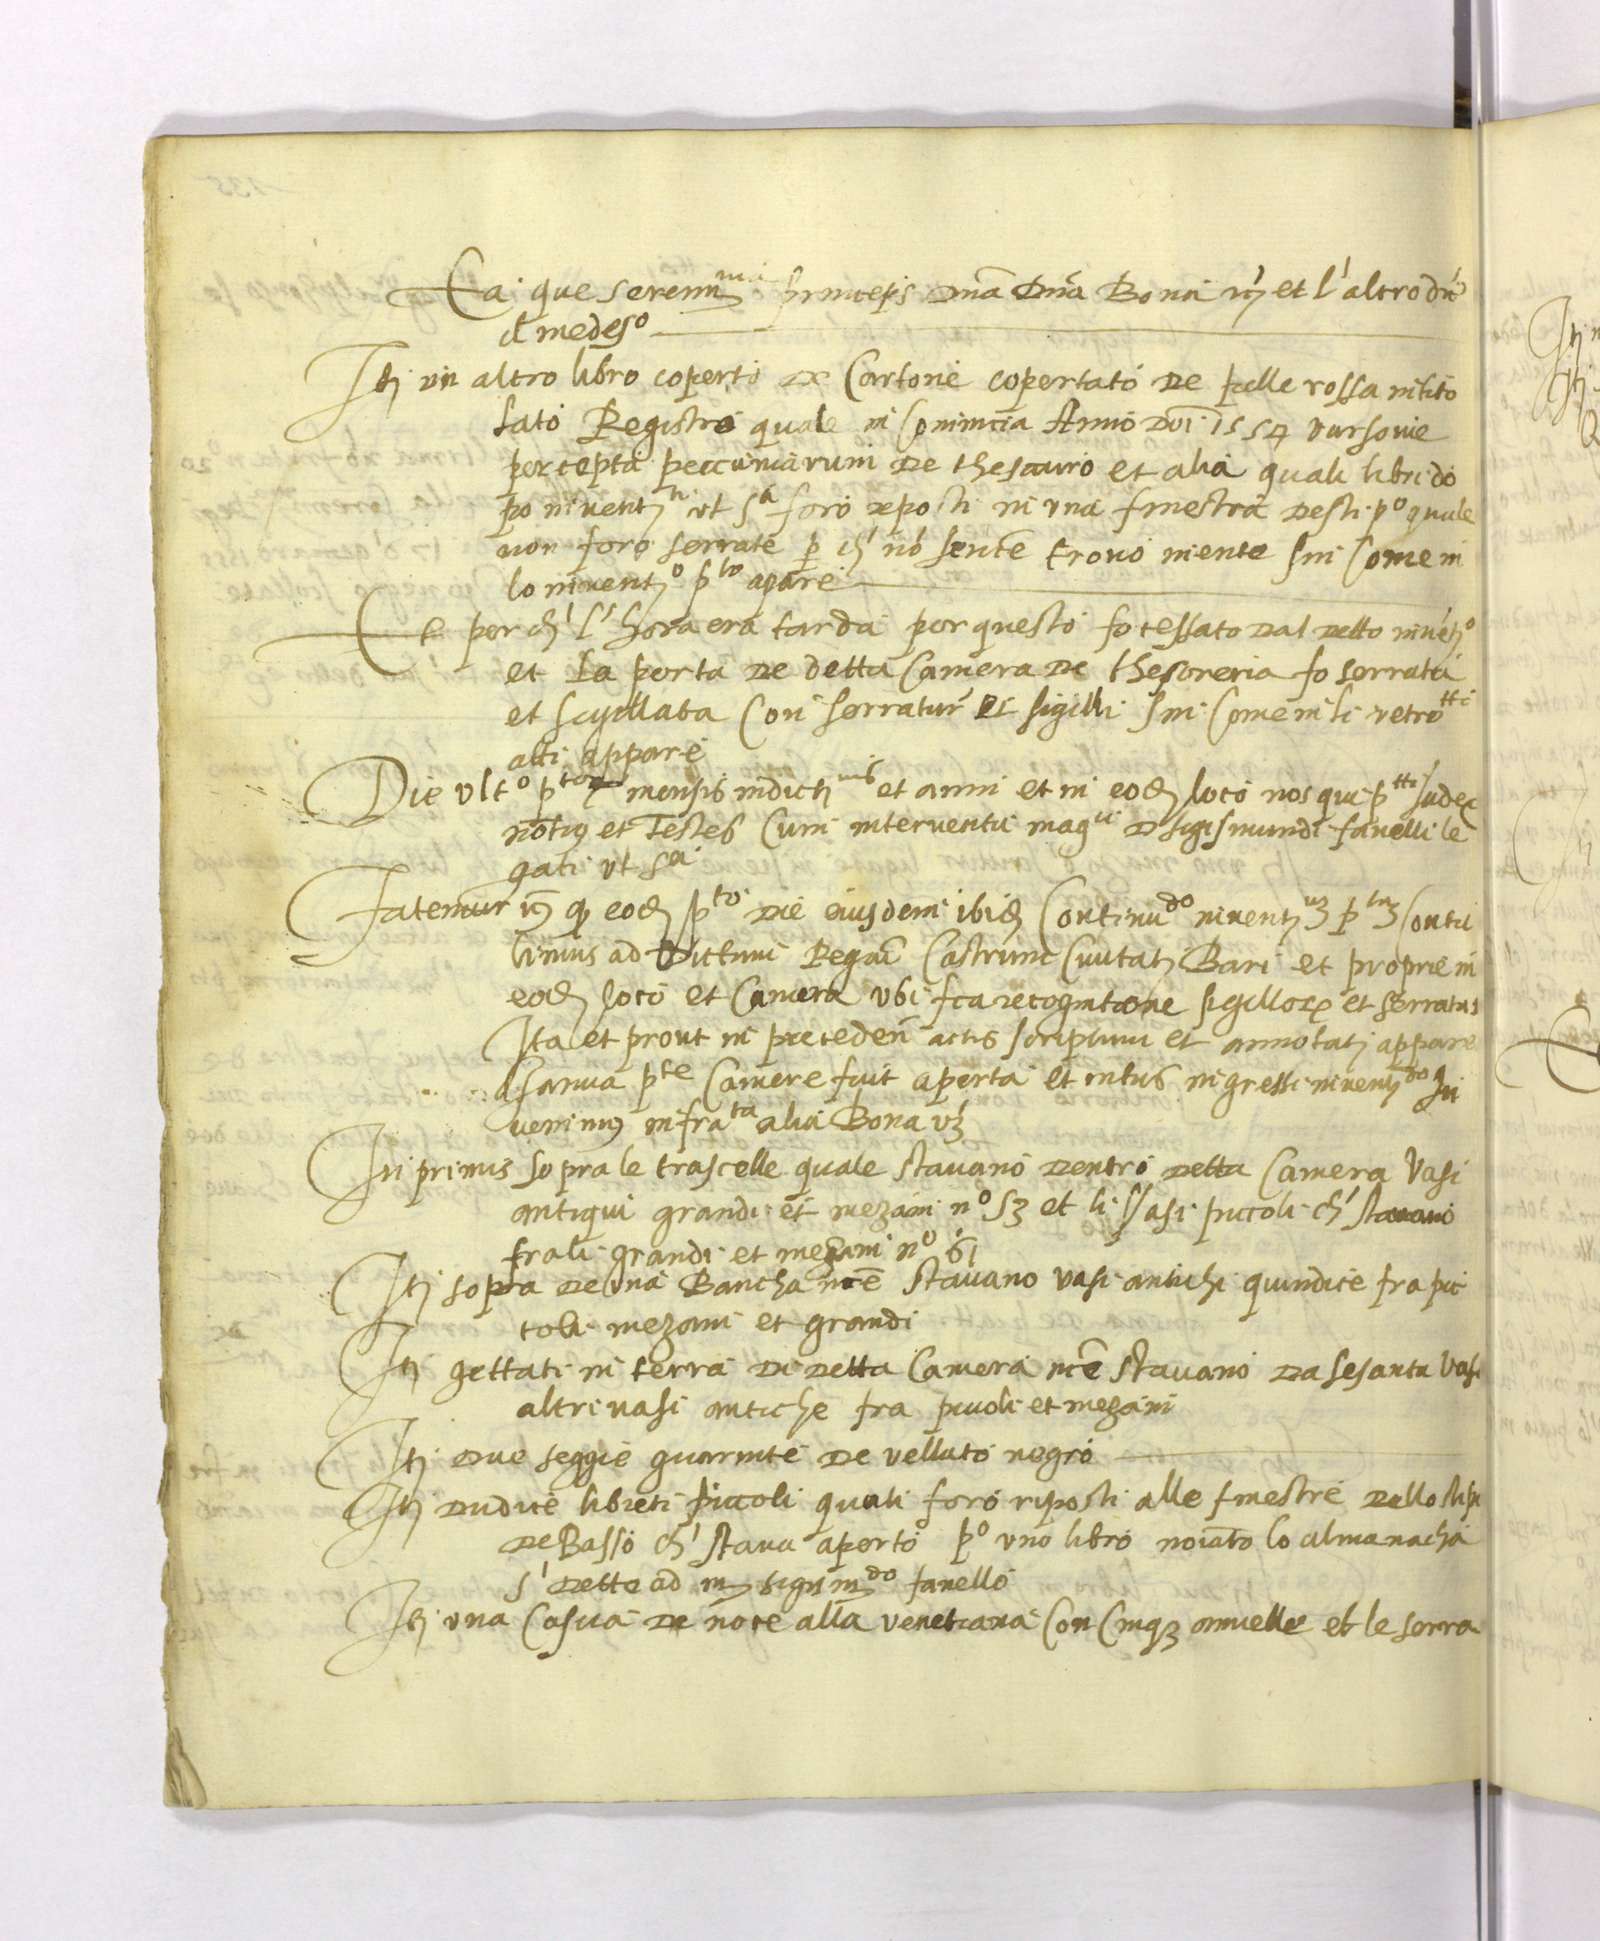 Ea que serenma princeps Dna Dna Bona et l' altro
el medeso
Itj un altro libro coperto de Cartone copertato de pelle rossa intito
lato Registro quale in Comincia Anno Dni 1554 varsovie
percepta peccuniarum de thesauro et alia quali libri do
po inventj ut sa foro reposti in una finestra de sti po quale
non foro serrate p ch' no sence trovo niente sin come in
lo inventjo pto apare
Et per ch' l' hora era tarda per questo fo cessato dal detto invetjo
et la porta de detta Camera de thesoreria fo serrata
et sigillata Con serratur et sigilli sin Come in li retro
atti appare
Die ulto mensis indictj et anni et in eodj loco nos qui ptti Judex
notus et Testes Cum interventu magci D sigismundi fanelli le
gati ut sa
Fatemur q eodj pto Die eiusdem ibidj Continudo inventj Contu
limus ad Dictum Regiu Castrum Civitatj Bari et proprie in
eodj loco et Camera ubi fca recognitione sigillor et serratur
Ita et prout in preceden actis scriptum et annotatj appare
Ianua pte Camere fuit aperta et intus ingressi inventjdo In
venimus infrata alia Bona vz
In primis sopra le trascelle quale stavano dentro detta Camera Vasi
antiqui grandi et mezani no 53 et li Vasi piccoli ch' stavano
fra li grandi et mezani no 61
Itj sopra de una Bancha nce stavano vasi antichi quindice fra pic
coli mezani et grandi
Itj gettati in terra di detta Camera nce stavano da sesanta Vasi
altri vasi antiche fra picoli et mezani
Itj due seggie guarnite de velluto negro
Itj dudice libreti piccoli quali foro riposti alle finestre dello stipo
de Basso ch' stava aperto po uno libro noiato lo almanacha
s' dette ad m sigismdo fanello
Itj una Casua de noce alla venetiana Con Cinq annelle et le serra